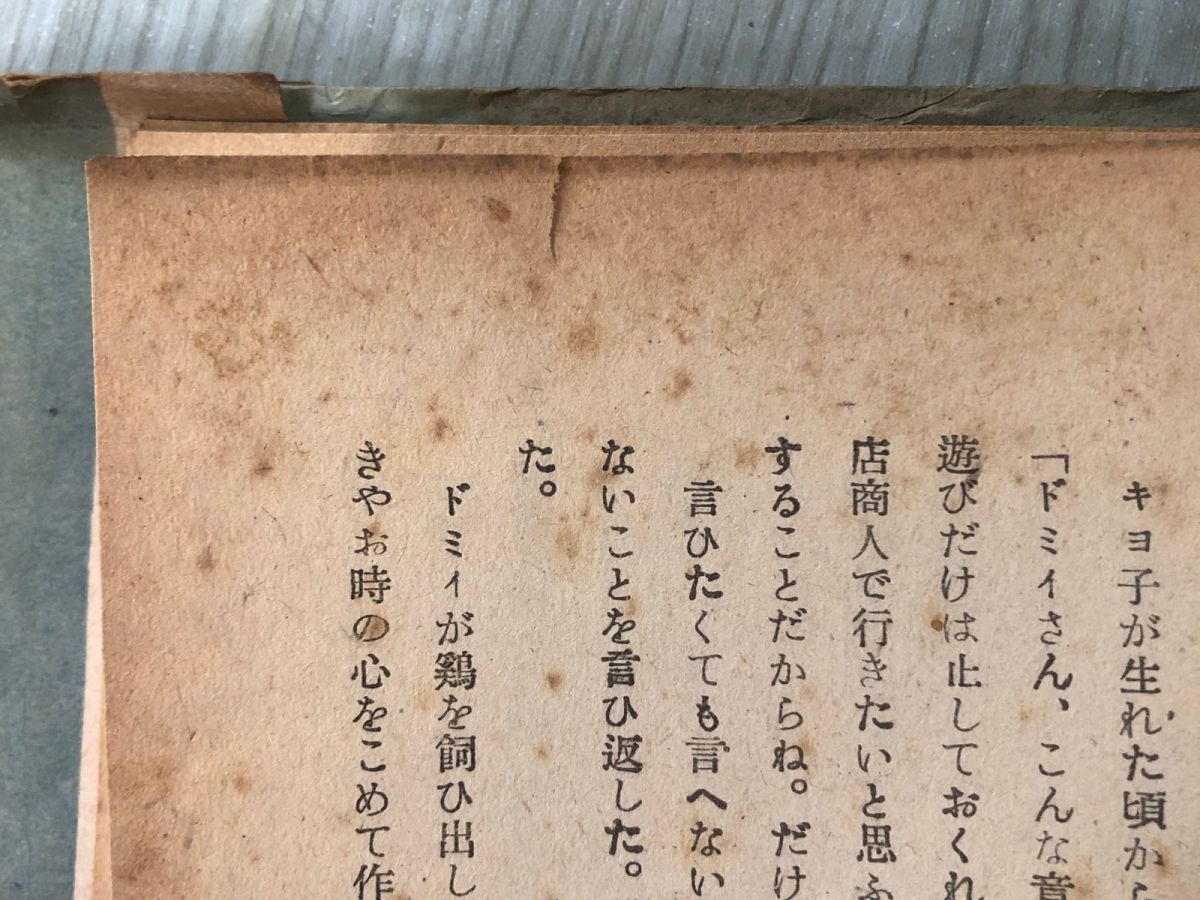 キヨ子が生れた頃から
「ドミィさん、こんな意
遊びだけは止しておくれ
店商人で行きたいと思ふ
することだからね。だけ
言ひたくても言へない
ないことを言ひ返した。
た。
ドミィが鶏を飼ひ出し
きやお時の心をこめて作